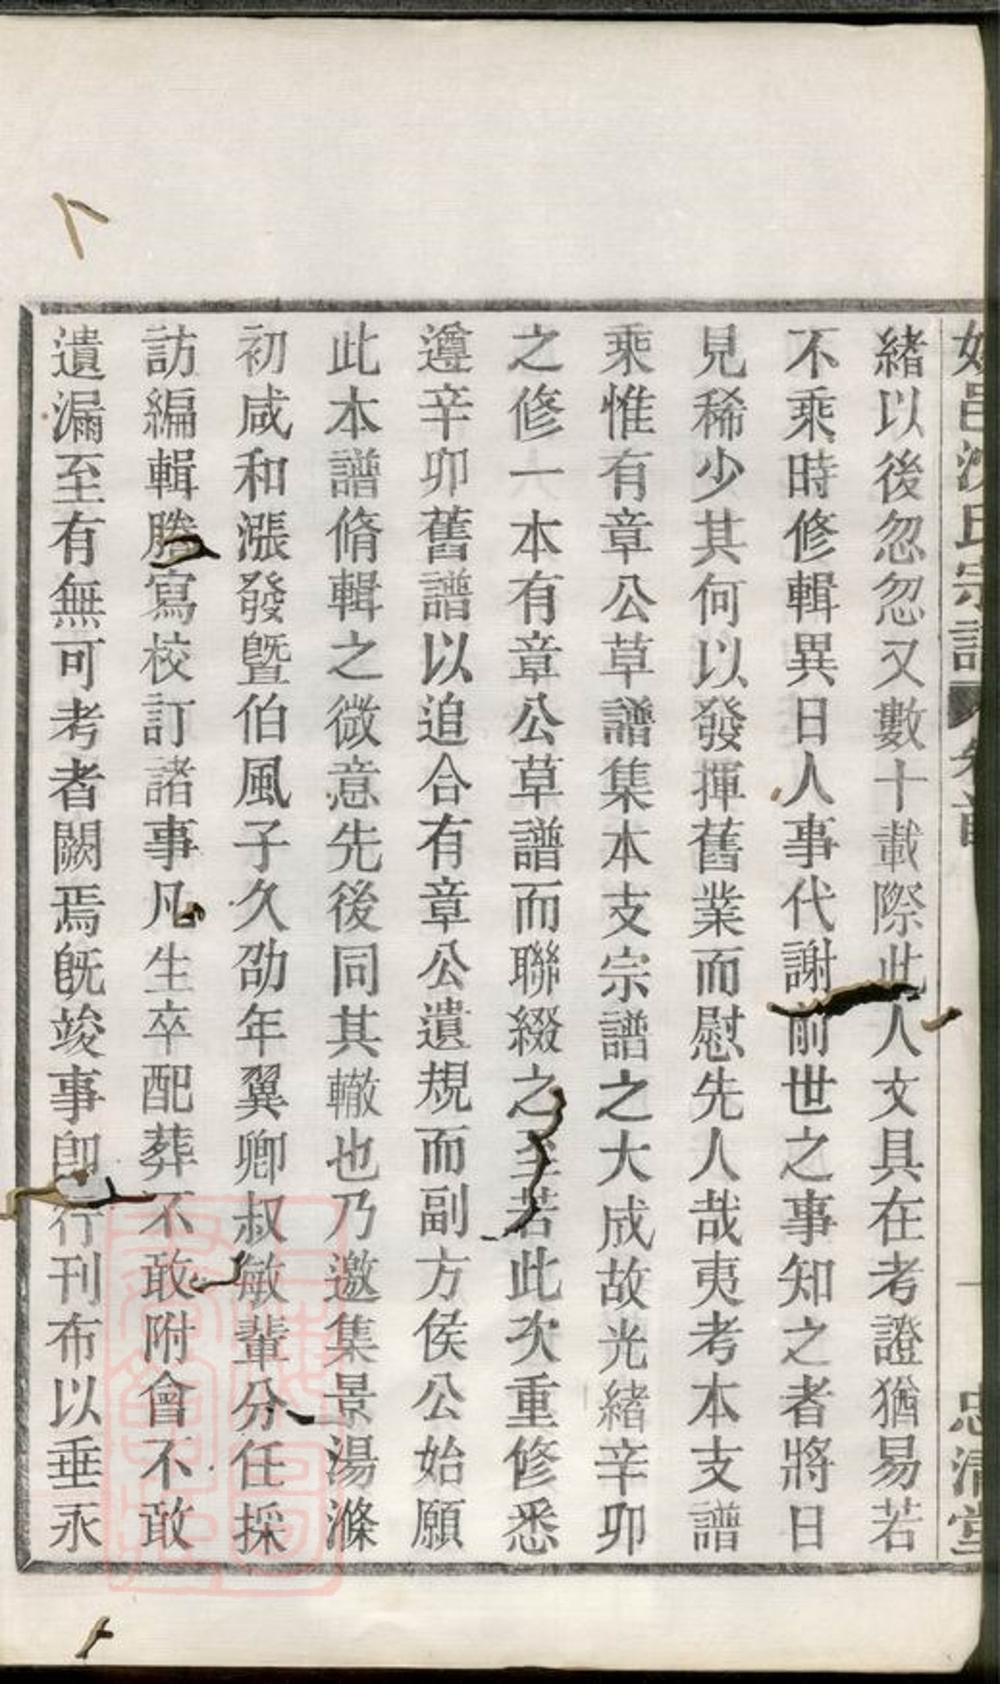 邑沈氏宗譜 卷首 一 忠清堂
緒以後忽忽又數十載際此人文具在考證猶易若
不乘時修輯異日人事代謝前世之事知之者將日
見稀少其何以發揮舊業而慰先人哉夷考本支譜
乘惟有章公草譜集本支宗譜之大成故光緒辛卯
之修一本有章公草譜而聯綴之至若此次重修悉
遵辛卯舊譜以追合有章公遺規而副方侯公始願
此本譜脩輯之微意先後同其轍也乃邀集景湯滌
初咸和漲發曁伯風子久劭年翼卿叔敏輩分任採
訪編輯謄寫校訂諸事凡生卒配葬不敢附會不敢
遺漏至有無可考者闕焉旣竣事卽行刊布以垂永